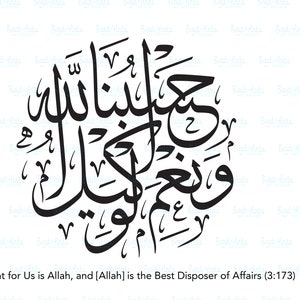 حسبنا الله
ونعم الوكيل
nt for Us is Allah, and [Allah] is the Best Disposer of Affairs (3:173)